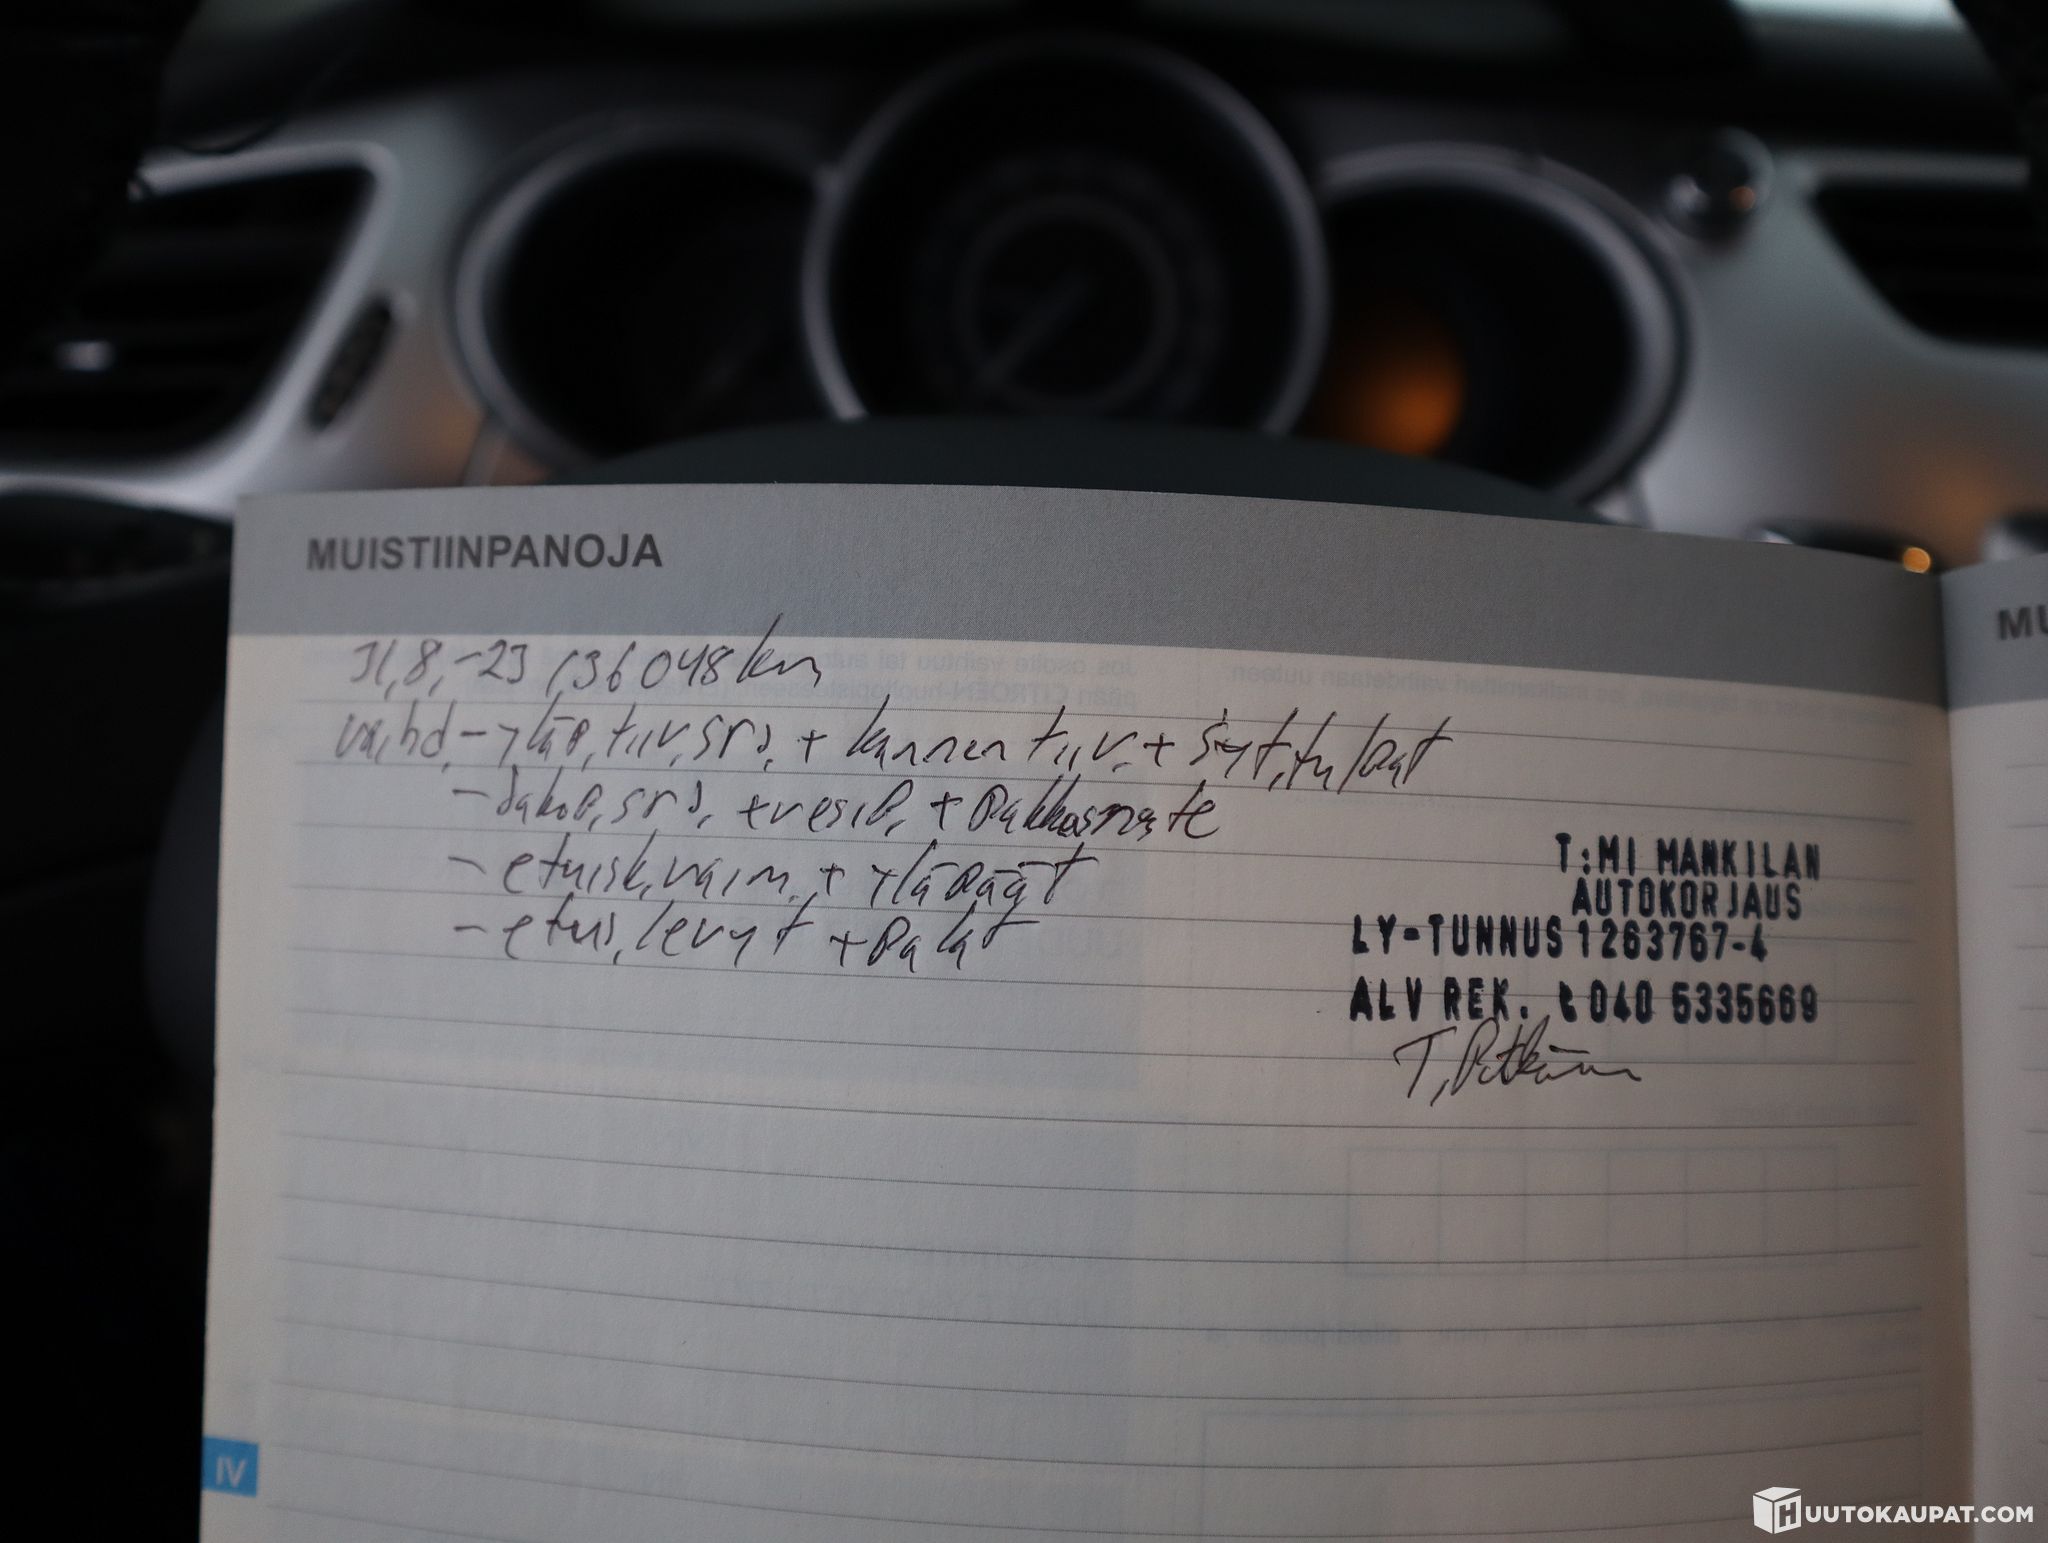 MUISTIINPANOJA
MU
31,8,-23 136048km
va,hd,-yläp,tiiv,srj, + kannen tiiv, + syt,tulpat
-jakop,srj, +vesip, + pakkasneste
- etuisk,vaim, + yläpäät
- etuj,levyt + palat
T:MI MANKILAN
AUTOKORJAUS
LY-TUNNUS 1263767-4
ALV REK. t 040 5335669
IV
HUUTOKAUPAT.COM